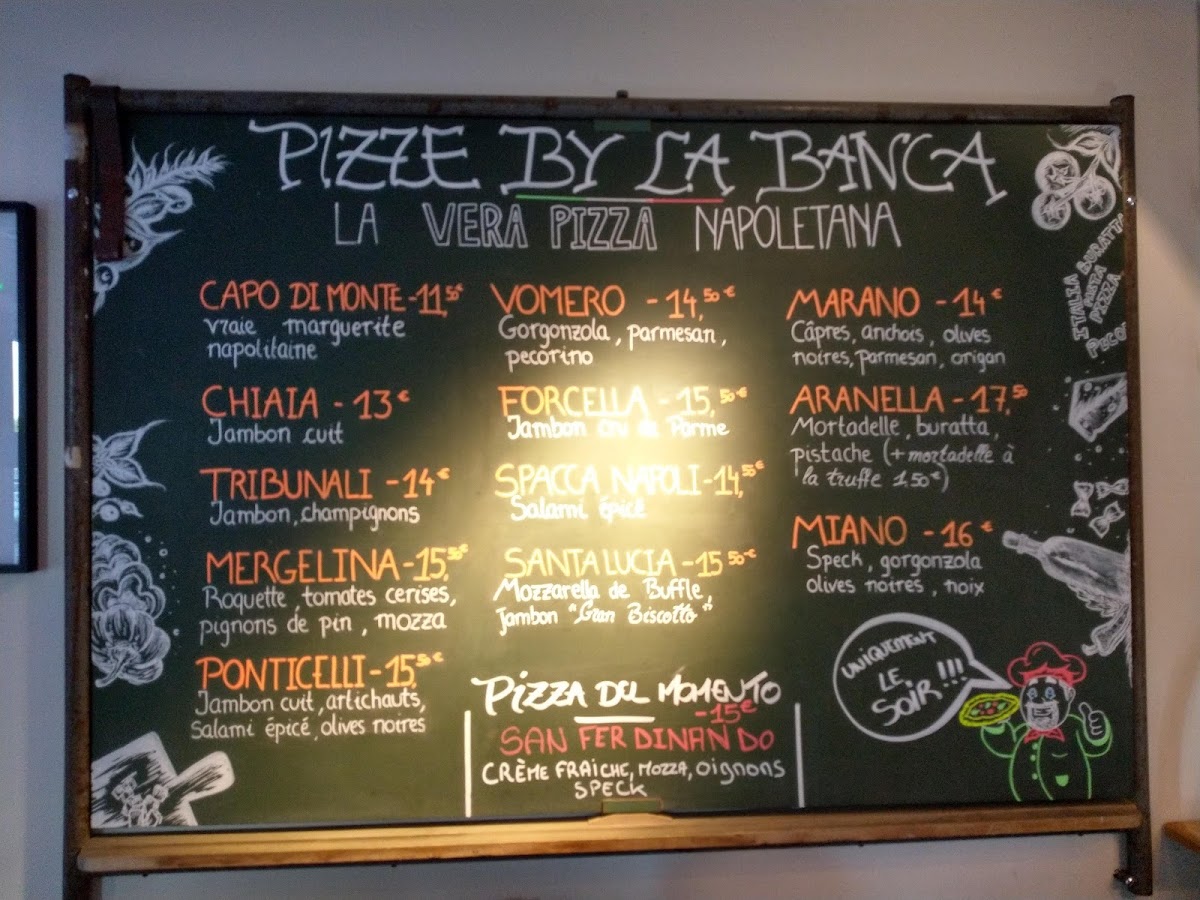 PIZZE BY LA BANCA
LA VERA PIZZA NAPOLETANA
CAPO DI MONTE - 11,50€
vraie marguerite
napolitaine
CHIAIA - 13€
Jambon cuit
TRIBUNALI - 14€
Jambon, champignons
MERGELINA - 15,50€
Roquette, tomates cerises,
pignons de pin, mozza
PONTICELLI - 15,50€
Jambon cuit, artichauts,
Salami épicé, olives noires
VOMERO - 14,50€
Gorgonzola, parmesan,
pecorino
FORCELLA - 15,50€
Jambon cru de Parme
SPACCA NAPOLI - 14,50€
Salami épicé
SANTA LUCIA - 15 50€
Mozzarella de Buffle,
Jambon "Gran Biscotto"
PIZZA DEL MOMENTO
- 15€
SAN FERDINANDO
CRÈME FRAICHE, MOZZA, oignons
SPECK
MARANO - 14€
Câpres, anchois, olives
noires, parmesan, origan
ARANELLA - 17,50
Mortadelle, buratta,
pistache (+ mortadelle à
la truffe 1.50€)
MIANO - 16€
Speck, gorgonzola
olives noires, noix
UNIQUEMENT
LE
SOIR!!!
ITALIA BURATTA
PASTA
PIZZA